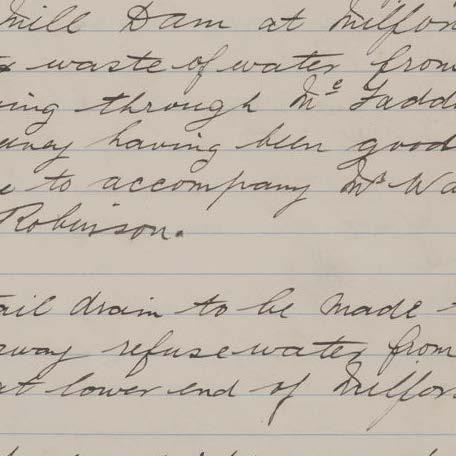 mill Dam at Milfor
waste of water from
ing through McFadd
avey having been good
e to accompany Mr Wa
Robinson.
ail drain to be made
away refuse water from
at lower end of Milfor